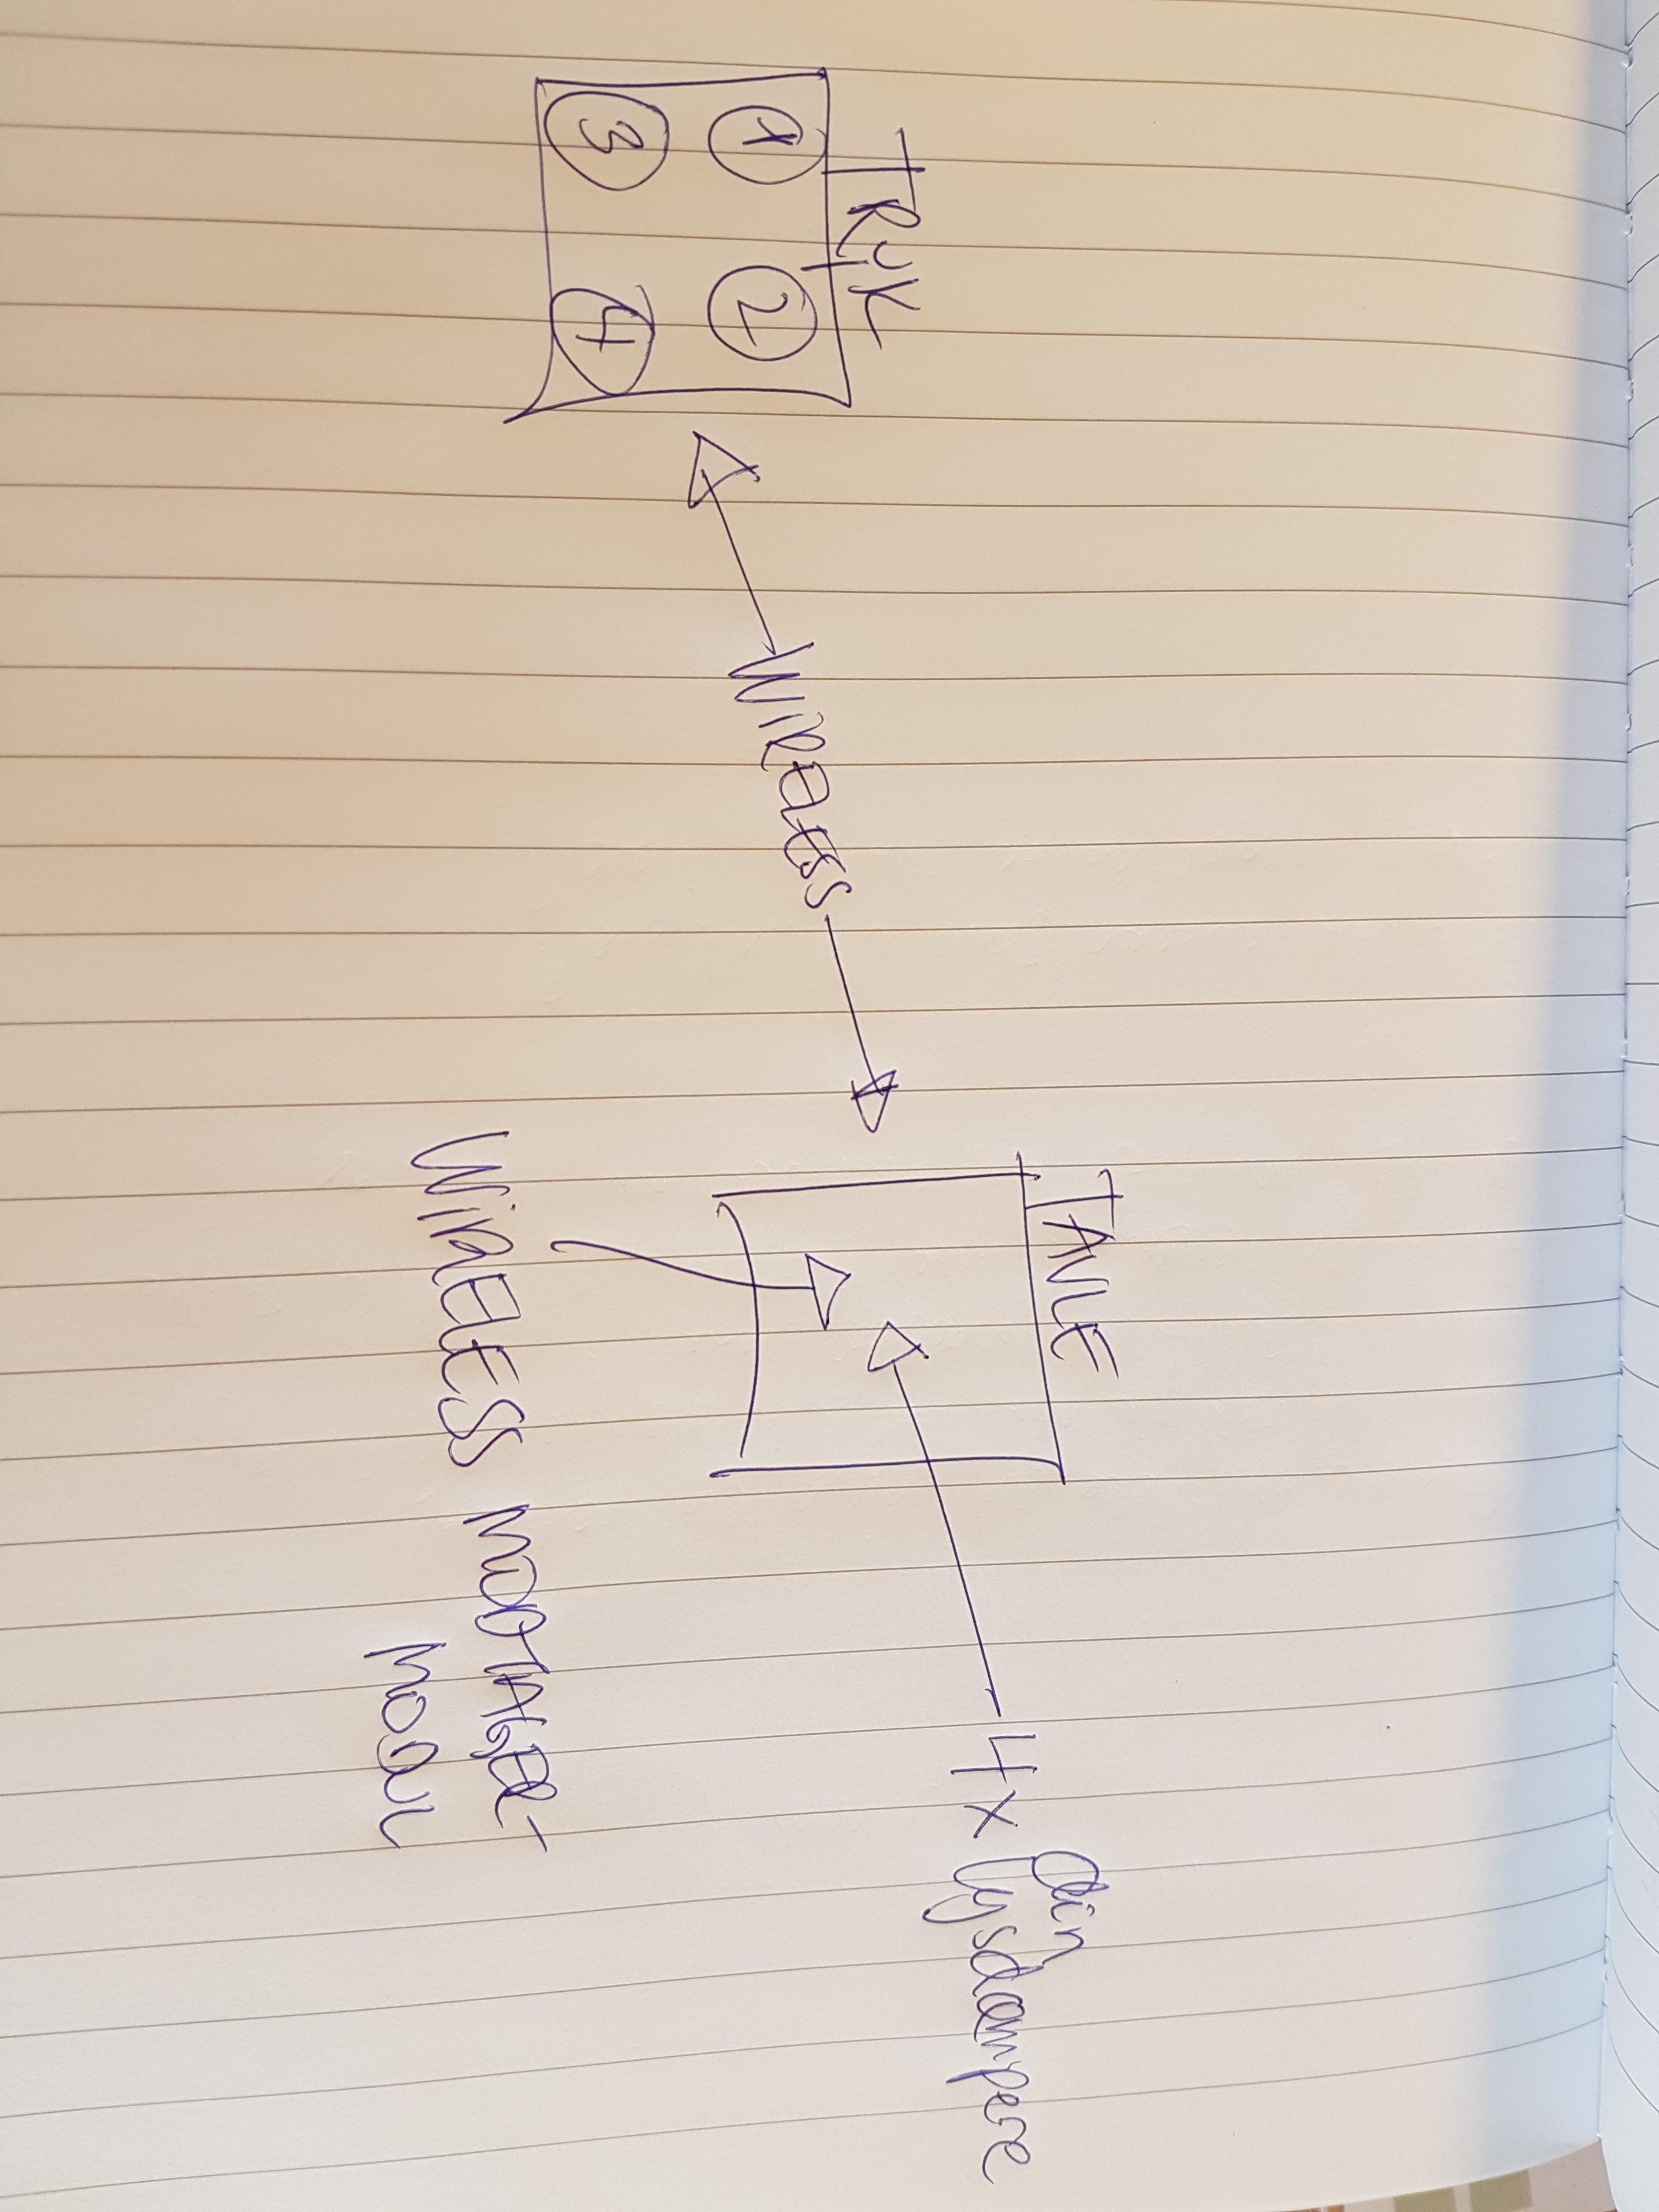 TRYK
1 2
3 4
WIRELESS
TAVLE
4x Din
lysdæmpere
WIRELESS MODTAGER-
MODUL